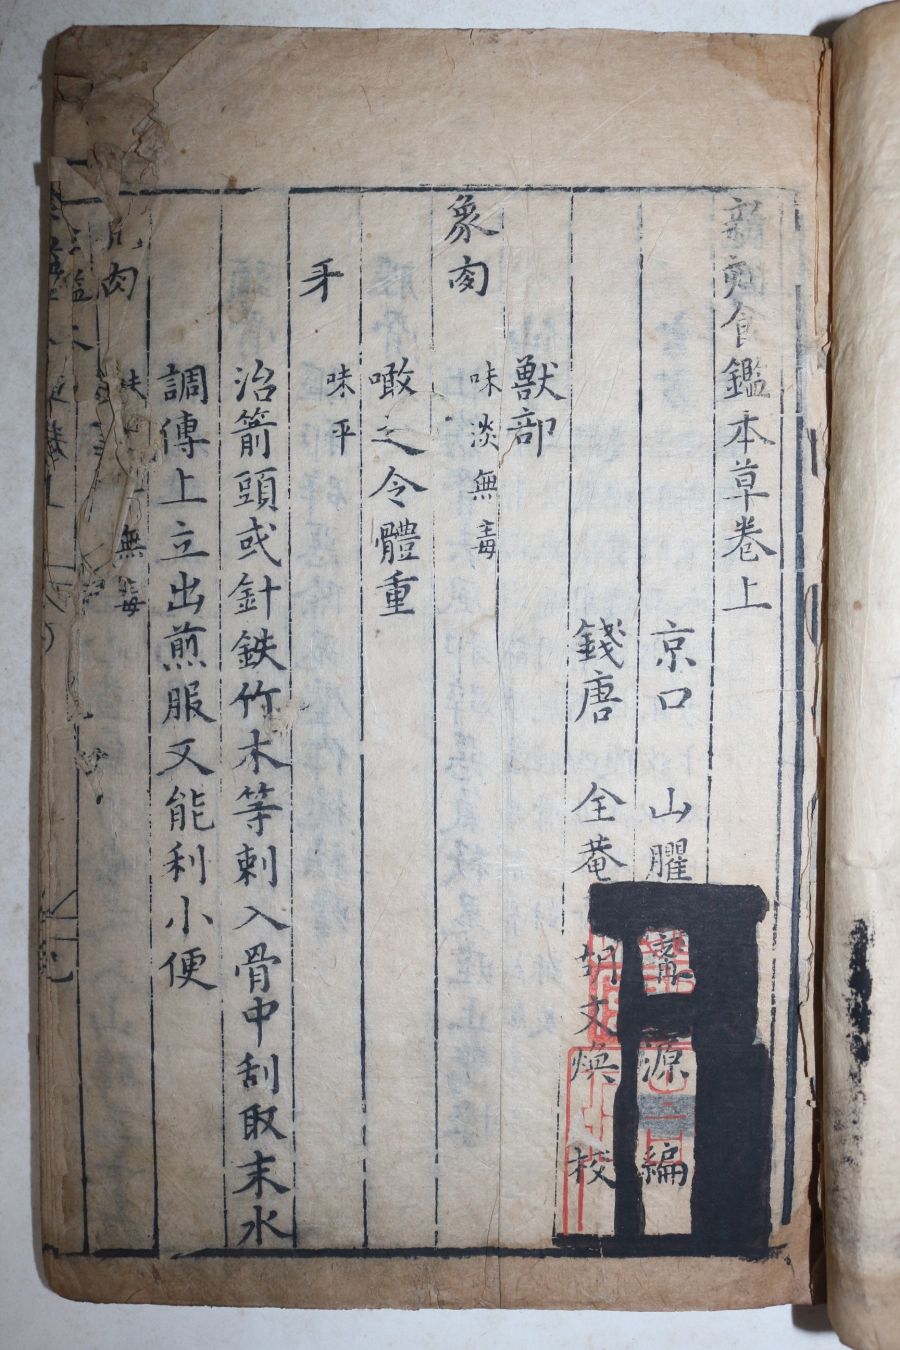 新刻食鑑本草卷上
京口 山臞 源 編
錢唐 全菴 胡文煥 校
獸部
象肉 味淡無毒
噉之令體重
牙 味平
治箭頭或針鉄竹木等刺入骨中刮取末水
調傅上立出煎服又能利小便
肉 味 無毒